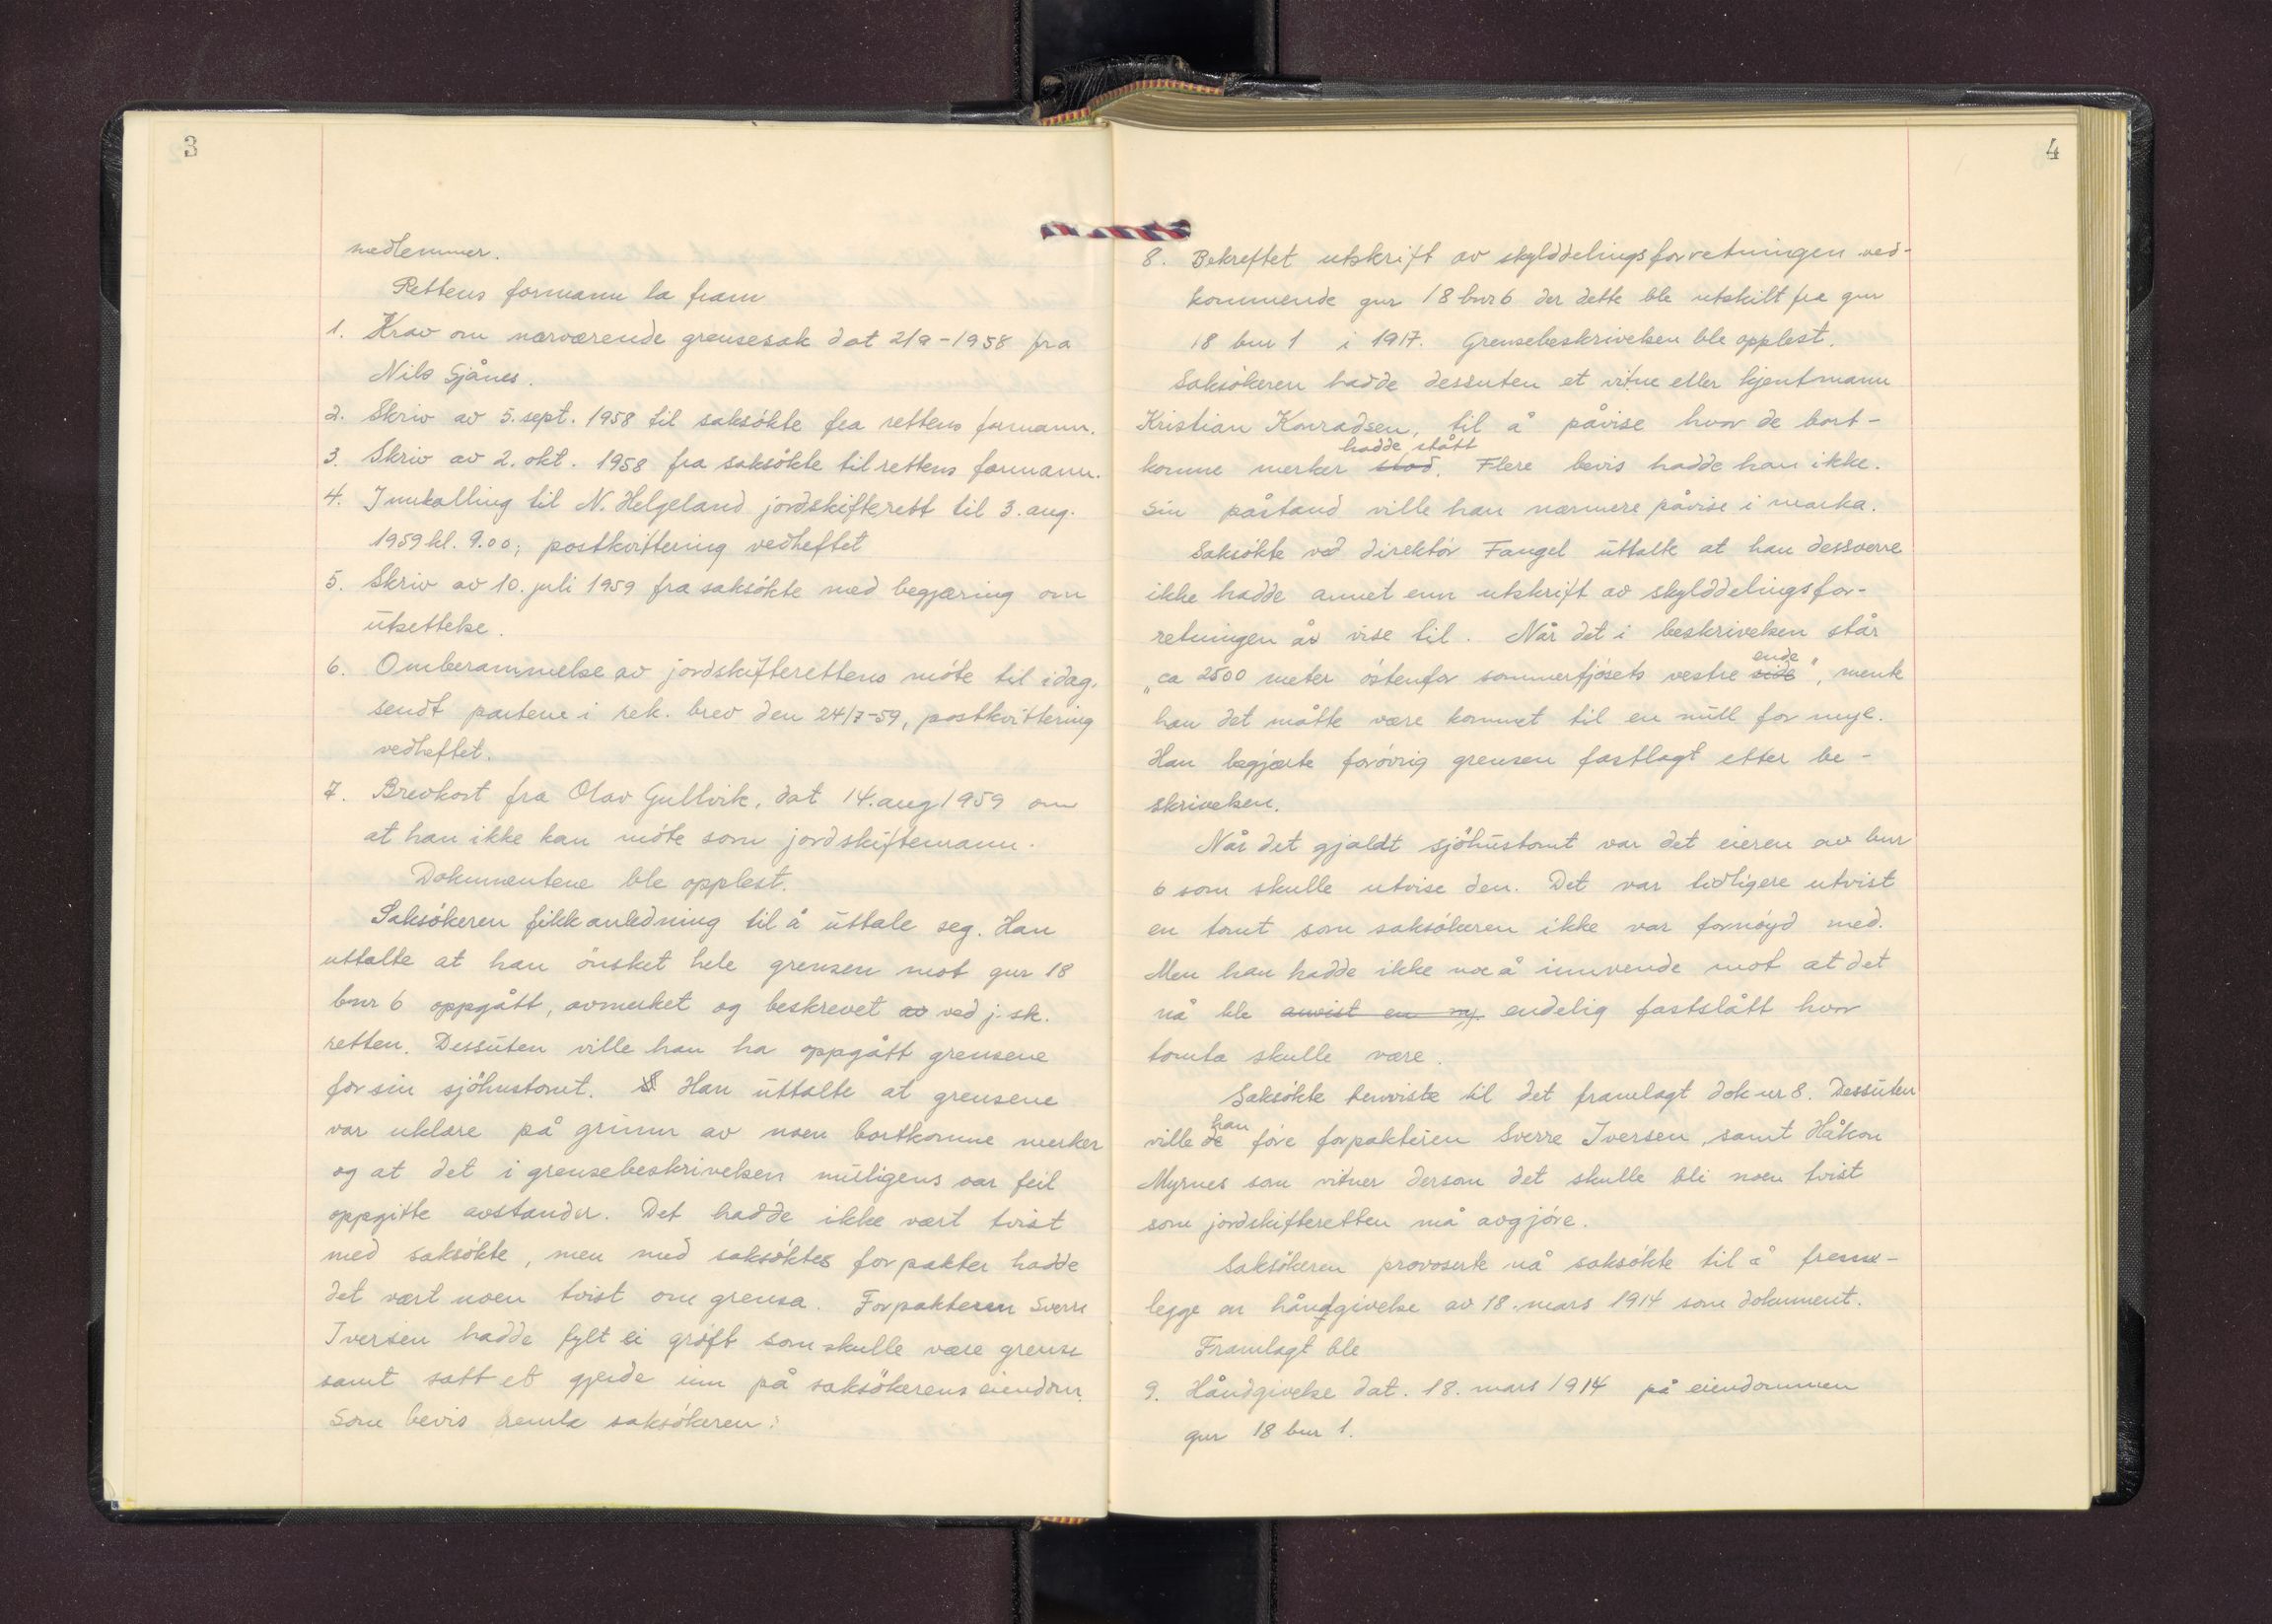 3
medlemmer.
Rettens formann la fram
1. Krav om nærværende grensesak dat 2/9-1958 fra
Nils Sjånes.
2. Skriv av 5. sept. 1958 til saksökte fra rettens formann.
3. Skriv av 2. okt. 1958 fra saksökte til rettens formann.
4. Innkalling til N. Helgeland jordskifterett til 3. aug.
1959 kl. 9.00; postkvittering vedheftet
5. Skriv av 10. juli 1959 fra saksökte med begjæring om
utsettelse.
6. Omberammelse av jordskifterettens möte til idag.
sendt partene i rek. brev den 24/7-59, postkvittering
vedheftet.
7. Brevkort fra Olav Gullvik, dat 14. aug 1959 om
at han ikke kan möte som jordskiftemann.
Dokumentene ble opplest.
Saksökeren fikk anledning til å uttale seg. Han
uttalte at han önsket hele grensen mot gnr 18
bnr 6 oppgått, avmerket og beskrevet av ved j.sk.
retten. Dessuten ville han ha oppgått grensene
for sin sjöhustomt. S Han uttalte at grensene
var uklare på grunn av noen bortkomne merker
og at det i grensebeskrivelsen muligens var feil
oppgitte avstander. Det hadde ikke vært tvist
med saksökte, men med saksöktes forpakter hadde
det vært noen tvist om grensa. Forpakteren Sverre
Iversen hadde fylt ei gröft som skulle være grense
samt satt et gjerde inn på saksökerens eiendom.
Som bevis nemte saksökeren:
4
8. Bekreftet utskrift av skylddelingsforretningen ved-
kommende gnr 18 bnr 6 der dette ble utskilt fra gnr
18 bnr 1 i 1917. Grensebeskrivelsen ble opplest.
Saksökeren hadde dessuten et vitne eller kjentmann
Kristian Konradsen, til å påvise hvor de bort-
hadde stått
komne merker stod. Flere bevis hadde han ikke.
Sin påstand ville han nærmere påvise i marka.
Saksökte ved direktör Fangel uttalte at han dessverre
ikke hadde annet enn utskrift av skylddelingsfor-
retningen å vise til. Når det i beskrivelsen står
ende
„ca 2500 meter östenfor sommerfjösets vestre side", mente
han det måtte være kommet til en null for mye.
Han begjærte forövrig grensen fastlagt etter be-
skrivelsen.
Når det gjaldt sjöhustomt var det eieren av bnr
6 som skulle utvise den. Det var tidligere utvist
en tomt som saksökeren ikke var fornöyd med.
Men han hadde ikke noe å innvende mot at det
nå ble anvist en ny. endelig fastslått hvor
tomta skulle være.
Saksökte henviste til det framlagt dok nr 8. Dessuten
han
ville de före forpakteren Sverre Iversen, samt Håkon
Myrnes som vitner dersom det skulle bli noen tvist
som jordskifteretten må avgjöre.
Saksökeren provoserte nå saksökte til å frem-
legge en håndgivelse av 18. mars 1914 som dokument.
Framlagt ble
9. Håndgivelse dat. 18. mars 1914 på eiendommen
gnr 18 bnr 1.